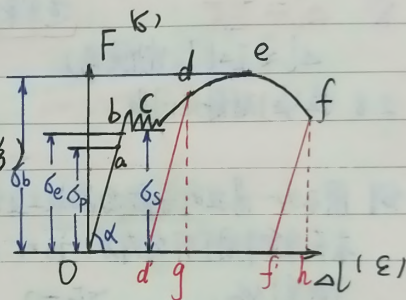 F (σ)
d e
b c f
a
σb σe σp σs
α
O d' g f' h Δl (ε)